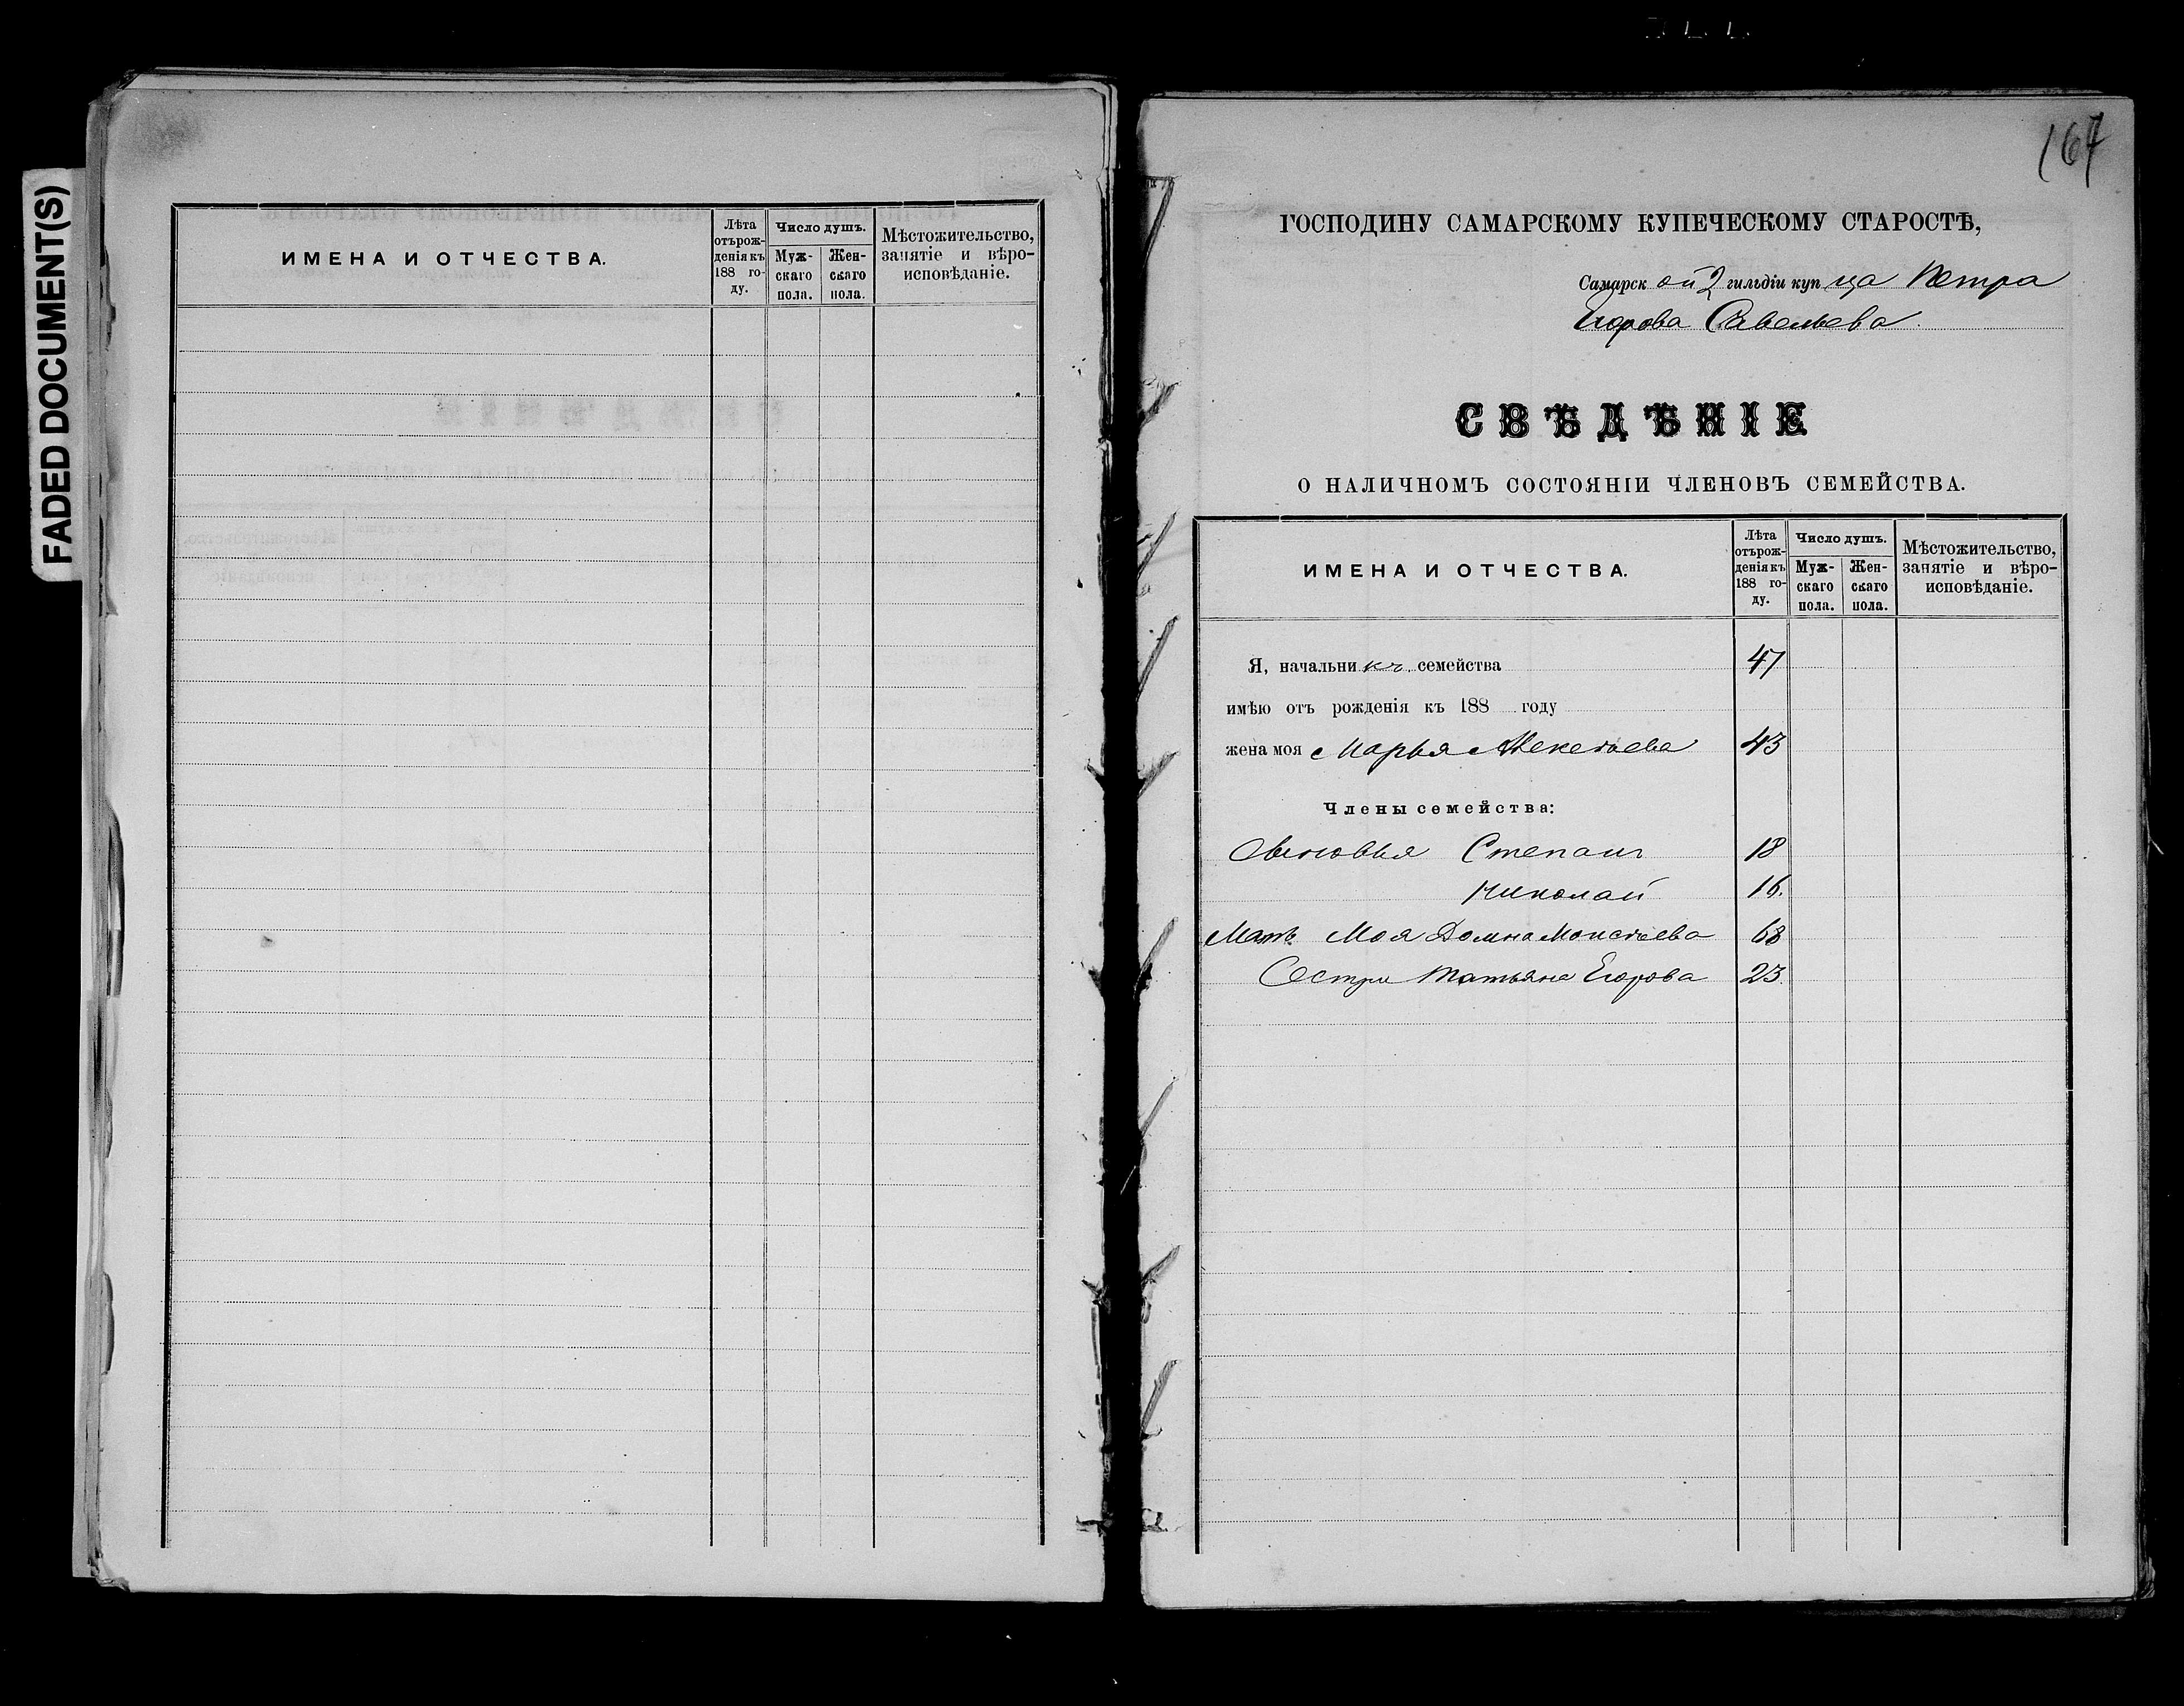 FADED DOCUMENT(S)
ИМЕНА И ОТЧЕСТВА.
Лѣта отъ рожденія къ 188 году.
Число душъ.
Мужскаго пола.
Женскаго пола.
Мѣстожительство, занятіе и вѣроисповѣданіе.
167
ГОСПОДИНУ САМАРСКОМУ КУПЕЧЕСКОМУ СТАРОСТѢ,
Самарской 2 гильдіи купца Петра
Егорова Савельева.
СВѢДѢНІЕ
О НАЛИЧНОМЪ СОСТОЯНІИ ЧЛЕНОВЪ СЕМЕЙСТВА.
ИМЕНА И ОТЧЕСТВА.
Лѣта отъ рожденія къ 188 году.
Число душъ.
Мужскаго пола.
Женскаго пола.
Мѣстожительство, занятіе и вѣроисповѣданіе.
Я, начальникъ семейства 47
имѣю отъ рожденія къ 188 году
жена моя Марья 43
Члены семейства:
Сыновья Степанъ 18
Николай 16.
Мать Моя Домна Моисѣева 68
Сестра Татьяна Егорова 23.